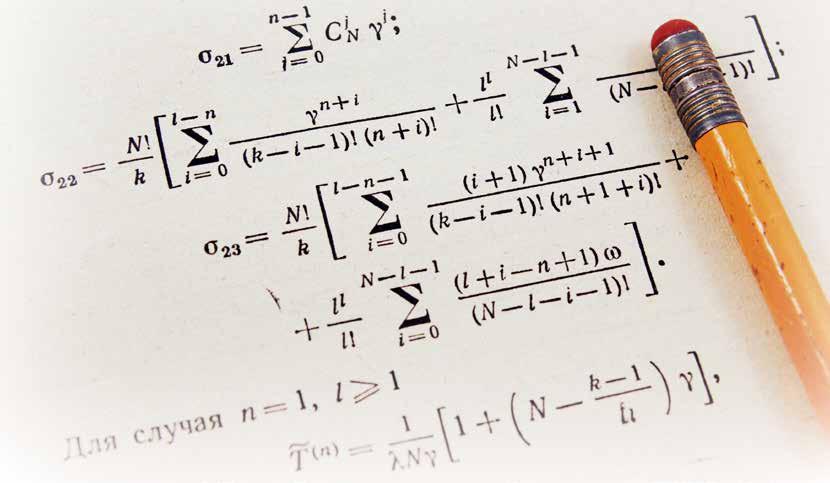 σ₂₁ = ∑_{i=0}^{n−1} C_N^i γ^i;
σ₂₂ = N!/k [ ∑_{i=0}^{l−n} γ^{n+i}/((k−i−1)! (n+i)!) + l^l/l! ∑_{i=1}^{N−l−1} /(N− 1)! ];
σ₂₃ = N!/k [ ∑_{i=0}^{l−n−1} (i+1) γ^{n+i+1}/((k−i−1)! (n+1+i)!) +
+ l^l/l! ∑_{i=0}^{N−l−1} (l+i−n+1) ω/(N−l−i−1)! ].
Для случая n = 1, l ⩾ 1
T̃^{(n)} = 1/(λNγ) [ 1 + ( N − (k−1)/ ) γ ],